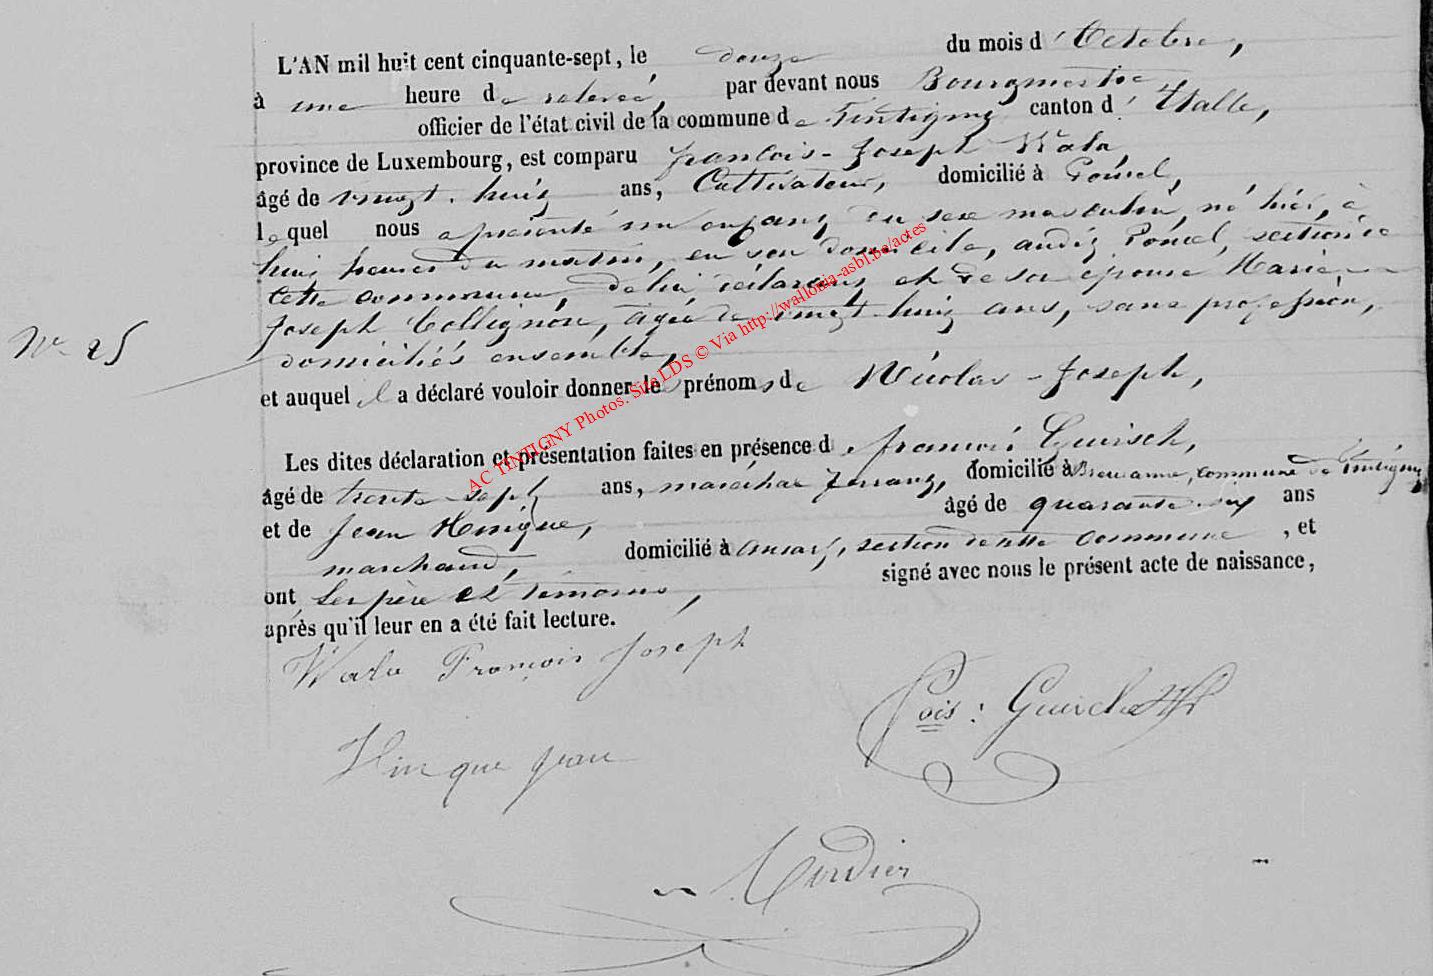 L'AN mil huit cent cinquante-sept, le douze du mois d'Octobre,
à une heure de relevée, par devant nous Bourgmestre,
officier de l'état civil de la commune de Tintigny canton d'Etalle,
province de Luxembourg, est comparu François-Joseph Wala,
âgé de vingt-huit ans, Cultivateur, domicilié à Poncel,
lequel nous a présenté un enfant du sexe masculin, né hier, à
huit heures du matin, en son domicile, audit Poncel, section de
cette commune, de lui déclarant et de son épouse Marie
Joseph Collignon, âgée de vingt-huit ans, sans profession,
N° 25
domiciliés ensemble,
et auquel il a déclaré vouloir donner les prénoms de Nicolas-Joseph,
Les dites déclaration et présentation faites en présence de François Guirsch,
âgé de trente-sept ans, maréchal ferrant, domicilié à Breuvanne, commune de Tintigny
et de Jean Hinque, âgé de quarante-six ans
marchand, domicilié à Ansart, section de cette commune, et
ont les père et témoins, signé avec nous le présent acte de naissance,
après qu'il leur en a été fait lecture.
Wala François Joseph
Fois: Guirche
Hinque Jean
AC TINTIGNY Photos. Site LDS © Via http://wallonia-asbl.be/actes